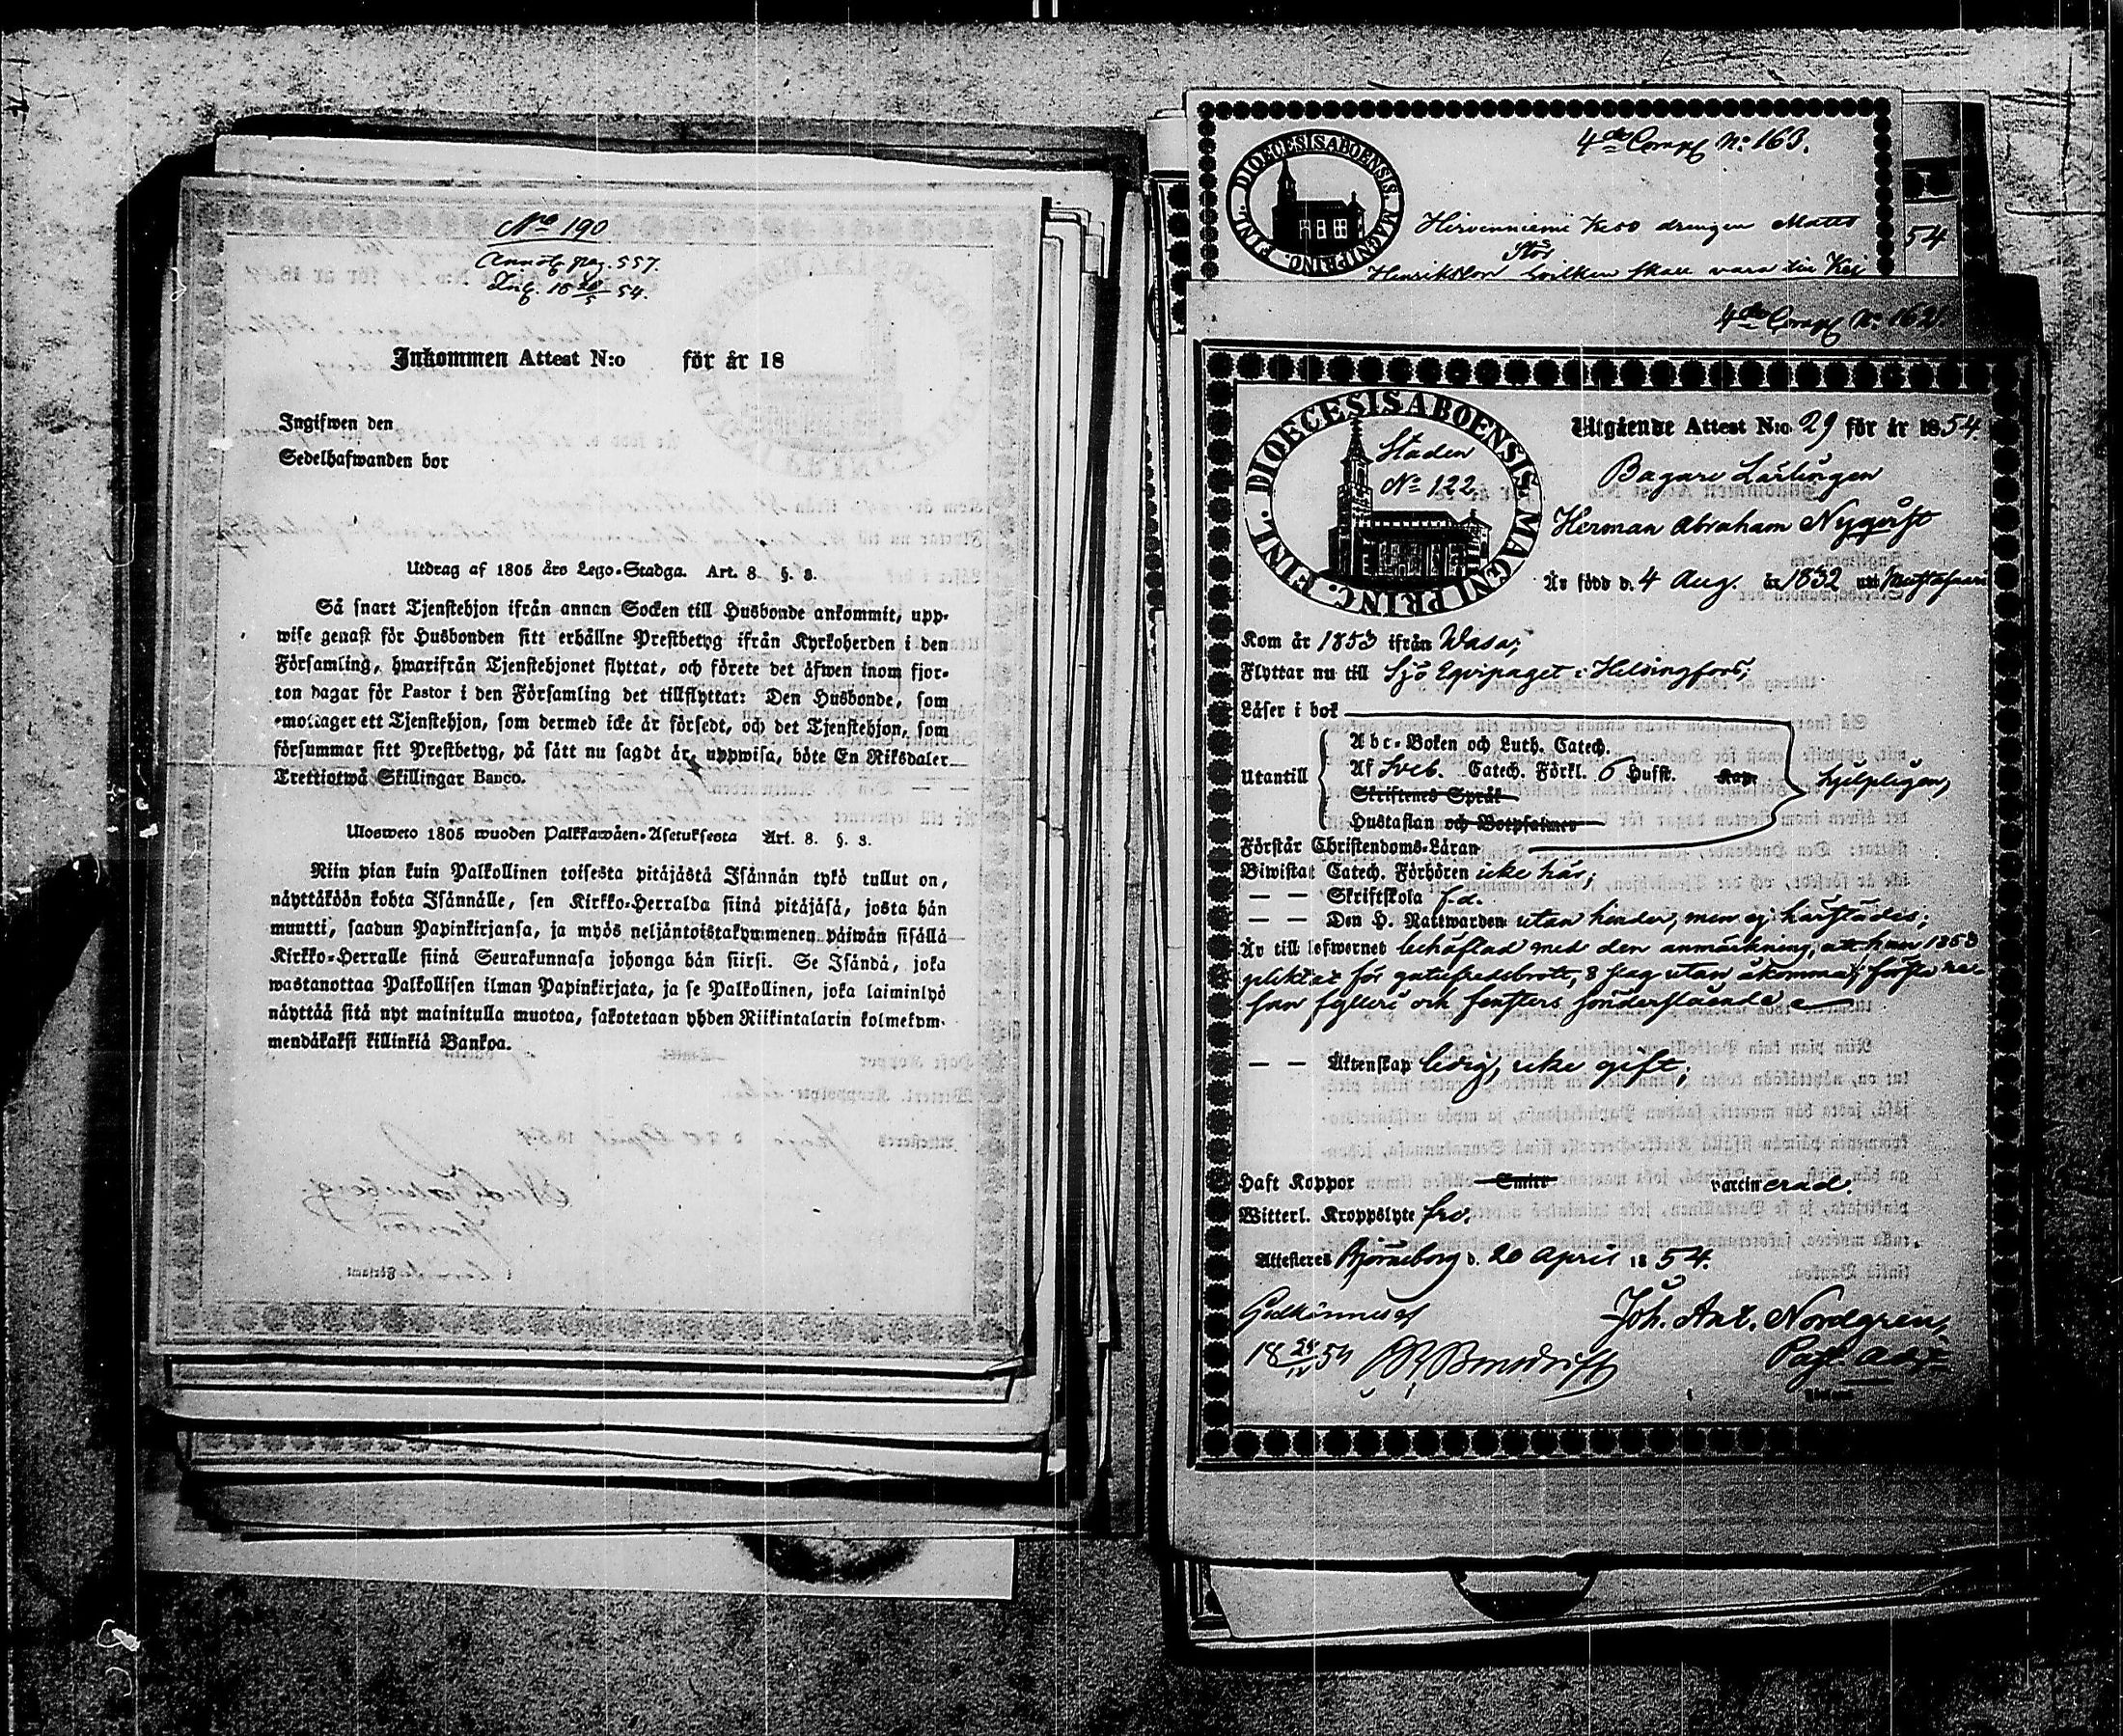 No 190
Annot. pag. 557.
Inkommen Attest N:o för år 18
Ingifwen den
Sedelhafwanden bor
Utdrag af 1805 års Lego-Stadga. Art. 8. §. 3.
Så snart Tjenstehjon ifrån annan Socken till Husbonde ankommit, upp-
wise genast för Husbonden sitt erhållne Prestbetyg ifrån Kyrkoherden i den
Församling, hwarifrån Tjenstehjonet flyttat, och förete det äfwen inom fjor-
ton dagar för Pastor i den Församling det tillflyttat: Den Husbonde, som
emottager ett Tjenstehjon, som dermed icke är försedt, och det Tjenstehjon, som
försummar sitt Prestbetyg, på sätt nu sagdt är, uppwisa, böte En Riksdaler
Trettiotwå Skillingar Banco.
Ulosweto 1805 wuoden Palkkawäen-Asetuksesta Art. 8. §. 3.
Niin pian kuin Palkollinen toisesta pitäjästä Isännän tykö tullut on,
näyttäköön kohta Isännälle, sen Kirkko-Herralda siinä pitäjäsä, josta hän
muutti, saadun Papinkirjansa, ja myös neljäntoistakymmenen päiwän sisällä
Kirkko-Herralle siinä Seurakunnasa johonga hän siirsi. Se Isändä, joka
wastanottaa Palkollisen ilman Papinkirjata, ja se Palkollinen, joka laiminlyö
näyttää sitä nyt mainitulla muotoa, sakotetaan yhden Riikintalarin kolmekym-
mendäkaksi killinkiä Bankoa.
4de Comp N:o 163.
DIOECESIS ABOENSIS. MAGNI PRINC. FINL.
Hirvenniemi Keso drengen Matts
Henriksson hvilken skall vara
54
4de Comp N:o 162
DIOECESIS ABOENSIS. MAGNI PRINC. FINL.
Staden
No 122
Utgående Attest N:o 29 för år 1854.
Bagare Lärlingen
Herman Abraham Nyqvist
Är född d. 4 Aug. år 1832 uti
Kom år 1853 ifrån Wasa;
Flyttar nu till Sjö Eqvipaget i Helsingfors;
Läser i bok
Utantill
Abc-Boken och Luth. Catech.
Af Sveb. Catech. Förkl. 6 Hufst. Kap.
Skriftenes Språk
Hustaflan och Botpsalmer
hjelpligen,
Förstår Christendoms-Läran
Biwistat Catech. Förhören icke här;
— — Skriftskola f.d.
— — Den H. Nattwarden utan hinder, men ej härstädes;
Är till lefwernet behäftad med den anmärkning, att han 1853
pliktat för gatufredsbrott, 8 slag utan åkomma, första
fylleri och fensters sönderslående
— — Äktenskap ledig, icke gift;
Haft Koppor Smitt vaccinerad.
Witterl. Kroppslyte fri.
Attesteres Björneborg d. 20 April 1854.
Joh. Ant. Nordgren,